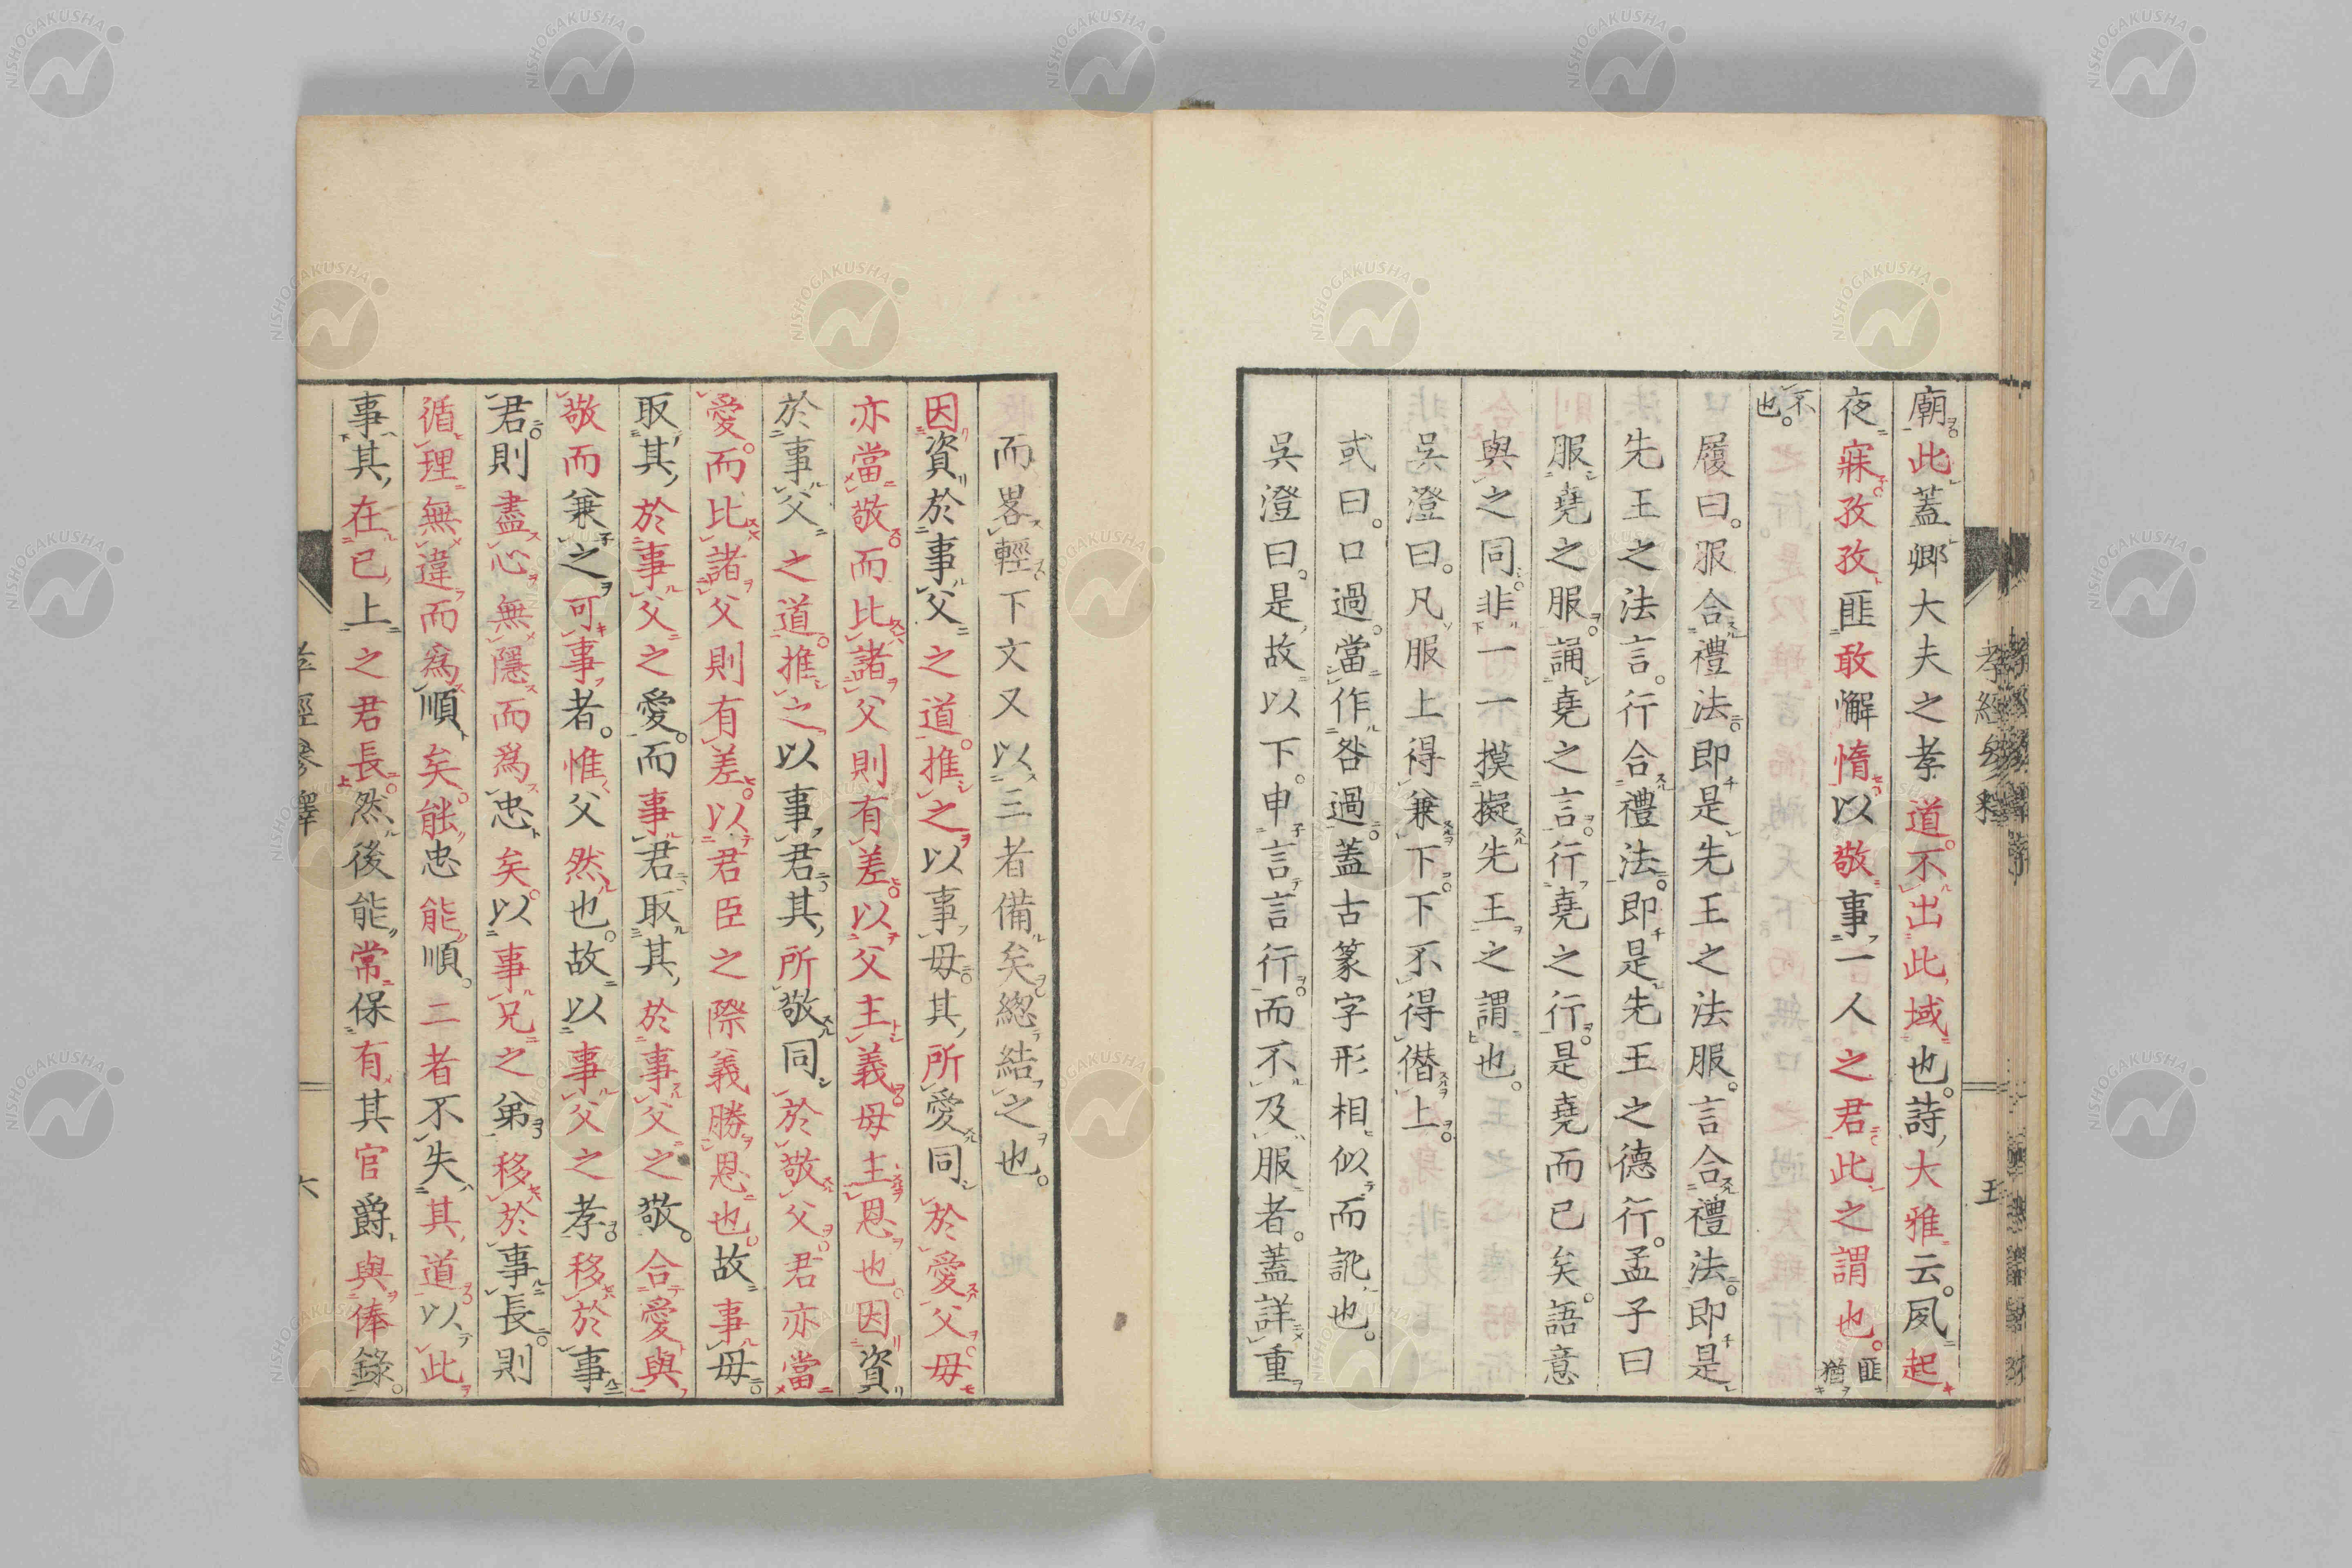 廟此蓋卿大夫之孝道不出此域也詩大雅云夙起
夜寐孜孜匪敢懈惰以敬事一人之君此之謂也匪猶
不也
履曰服合禮法即是先王之法服言合禮法即是
先王之法言行合禮法即是先王之德行孟子曰
服堯之服誦堯之言行堯之行是堯而已矣語意
與之同非一一摸擬先王之謂也
吳澄曰凡服上得兼下下不得僣上
或曰口過當作咎過蓋古篆字形相似而訛也
吳澄曰是故以下申言言行而不及服者蓋詳重
而畧輕下文又以三者備矣總結之也
因資於事父之道推之以事母其所愛同於愛父母
亦當敬而比諸父則有差以父主義母主恩也因資
於事父之道推之以事君其所敬同於敬父君亦當
愛而比諸父則有差以君臣之際義勝恩也故事母
取其於事父之愛而事君取其於事父之敬合愛與
敬而兼之可事者惟父然也故以事父之孝移於事
君則盡心無隱而爲忠矣以事兄之弟移於事長則
循理無違而爲順矣能忠能順二者不失其道以此
事其在已上之君長然後能常保有其官爵與俸錄
孝經參釋
六
五
NISHOGAKUSHA